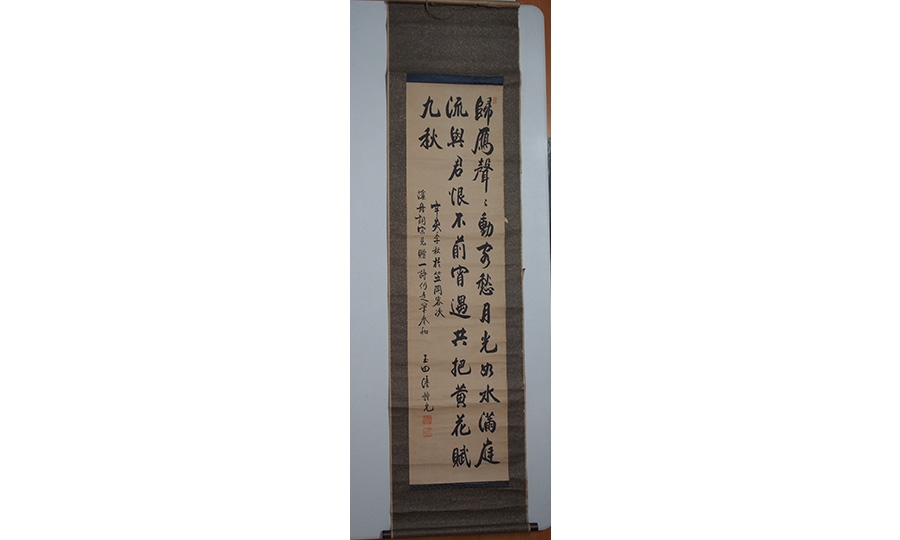 歸鴈聲〻動客愁月光如水滿庭
流與君恨不前宵遇共把黄花賦
九秋
辛亥季秋於竺岡客次
詞宗見贈一詩仍走筆奉和
玉田